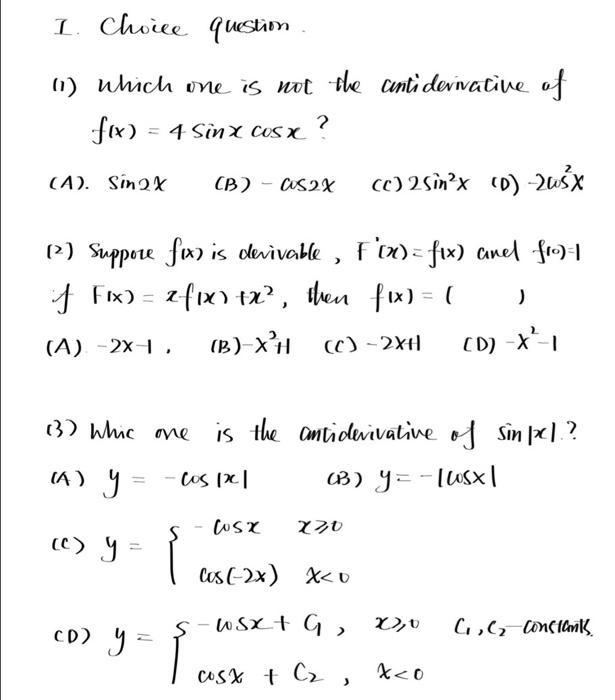 I. Choice question.
(1) which one is not the antiderivative of
f(x) = 4 sinx cosx ?
(A). Sin2x (B) - cos2x (C) 2sin²x (D) -2cos²x
(2) Suppose f(x) is derivable, F'(x) = f(x) and f(0)=1
if F(x) = xf(x) + x², then f(x) = ( )
(A) -2x-1. (B) -x²+1 (C) -2x+1 (D) -x²-1
(3) Whic one is the antiderivative of sin|x|.?
(A) y = -cos|x| (B) y = -|cosx|
(C) y = { -cosx x≥0
cos(-2x) x<0
(D) y = { -cosx + C₁, x≥0 C₁, C₂ - constants.
cosx + C₂, x<0